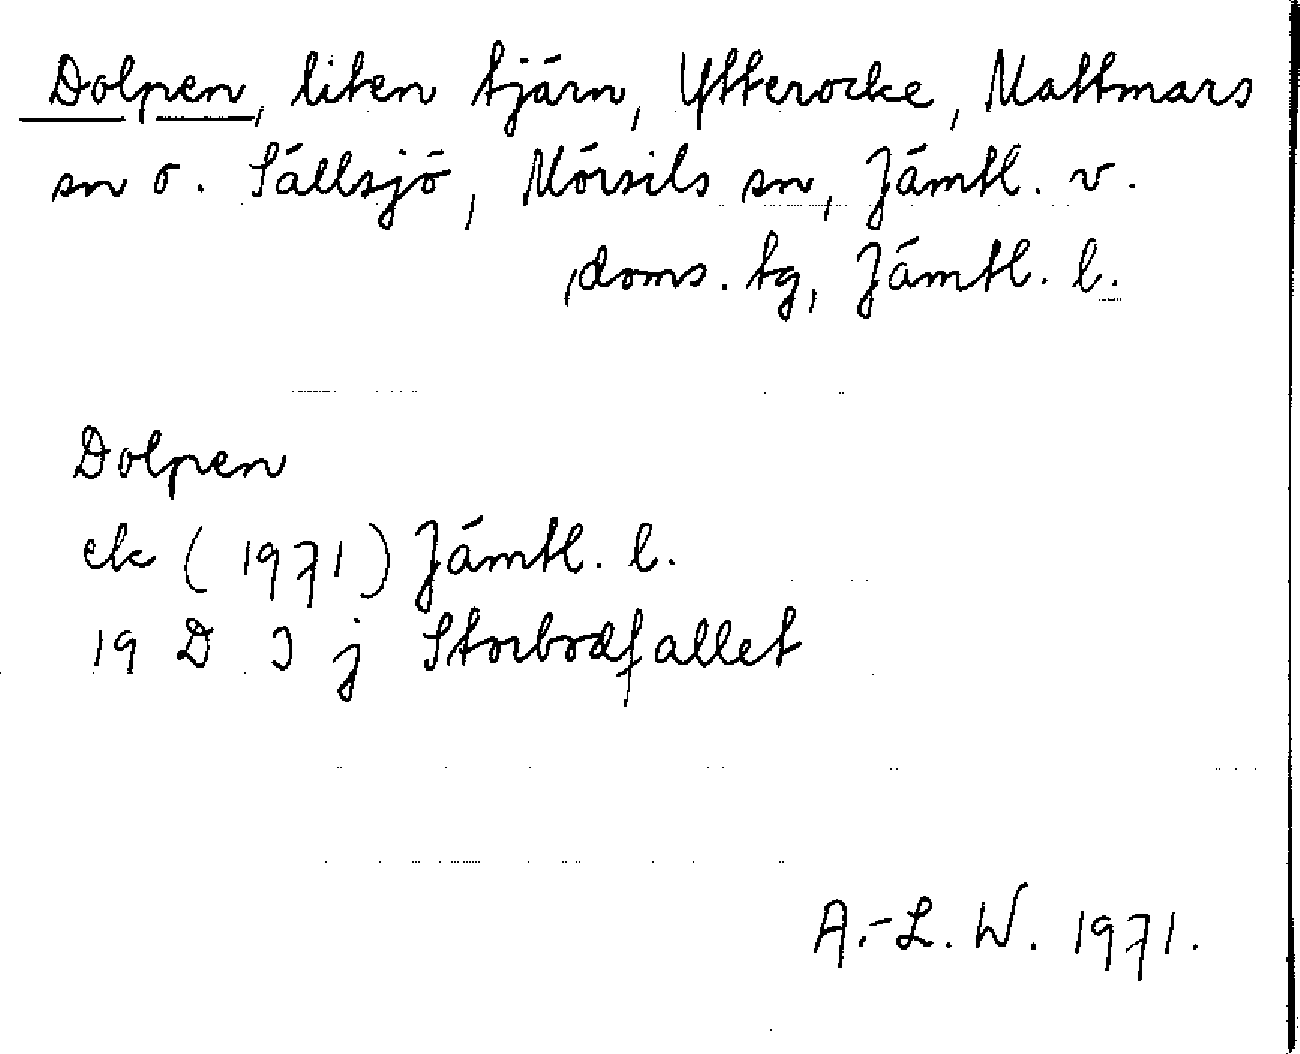 Dolpen, liten tjärn, Ytterocke, Mattmars
sn o. Sällsjö, Mörsils sn, Jämtl. v.
doms. tg, Jämtl. l.
Dolpen
ek (1971) Jämtl. l.
19 D 3 j Storbrodfallet
A.-L. W. 1971.